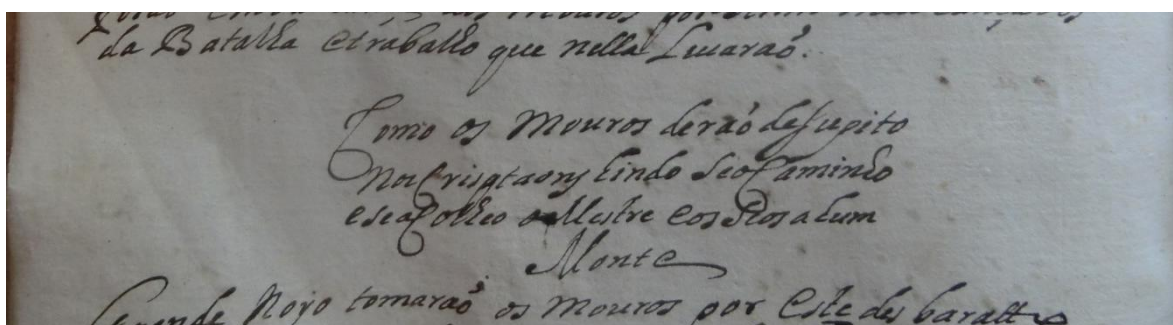 da Batalha etraballo que nella Leuaraõ.
Como os Mouros deraõ de supito
Nos Crisptaons hindo seo Caminho
e se acolheo o Mestre Cos Seos a hum
Monte
Grande Nojo tomaraõ os Mouros por Este des baratto